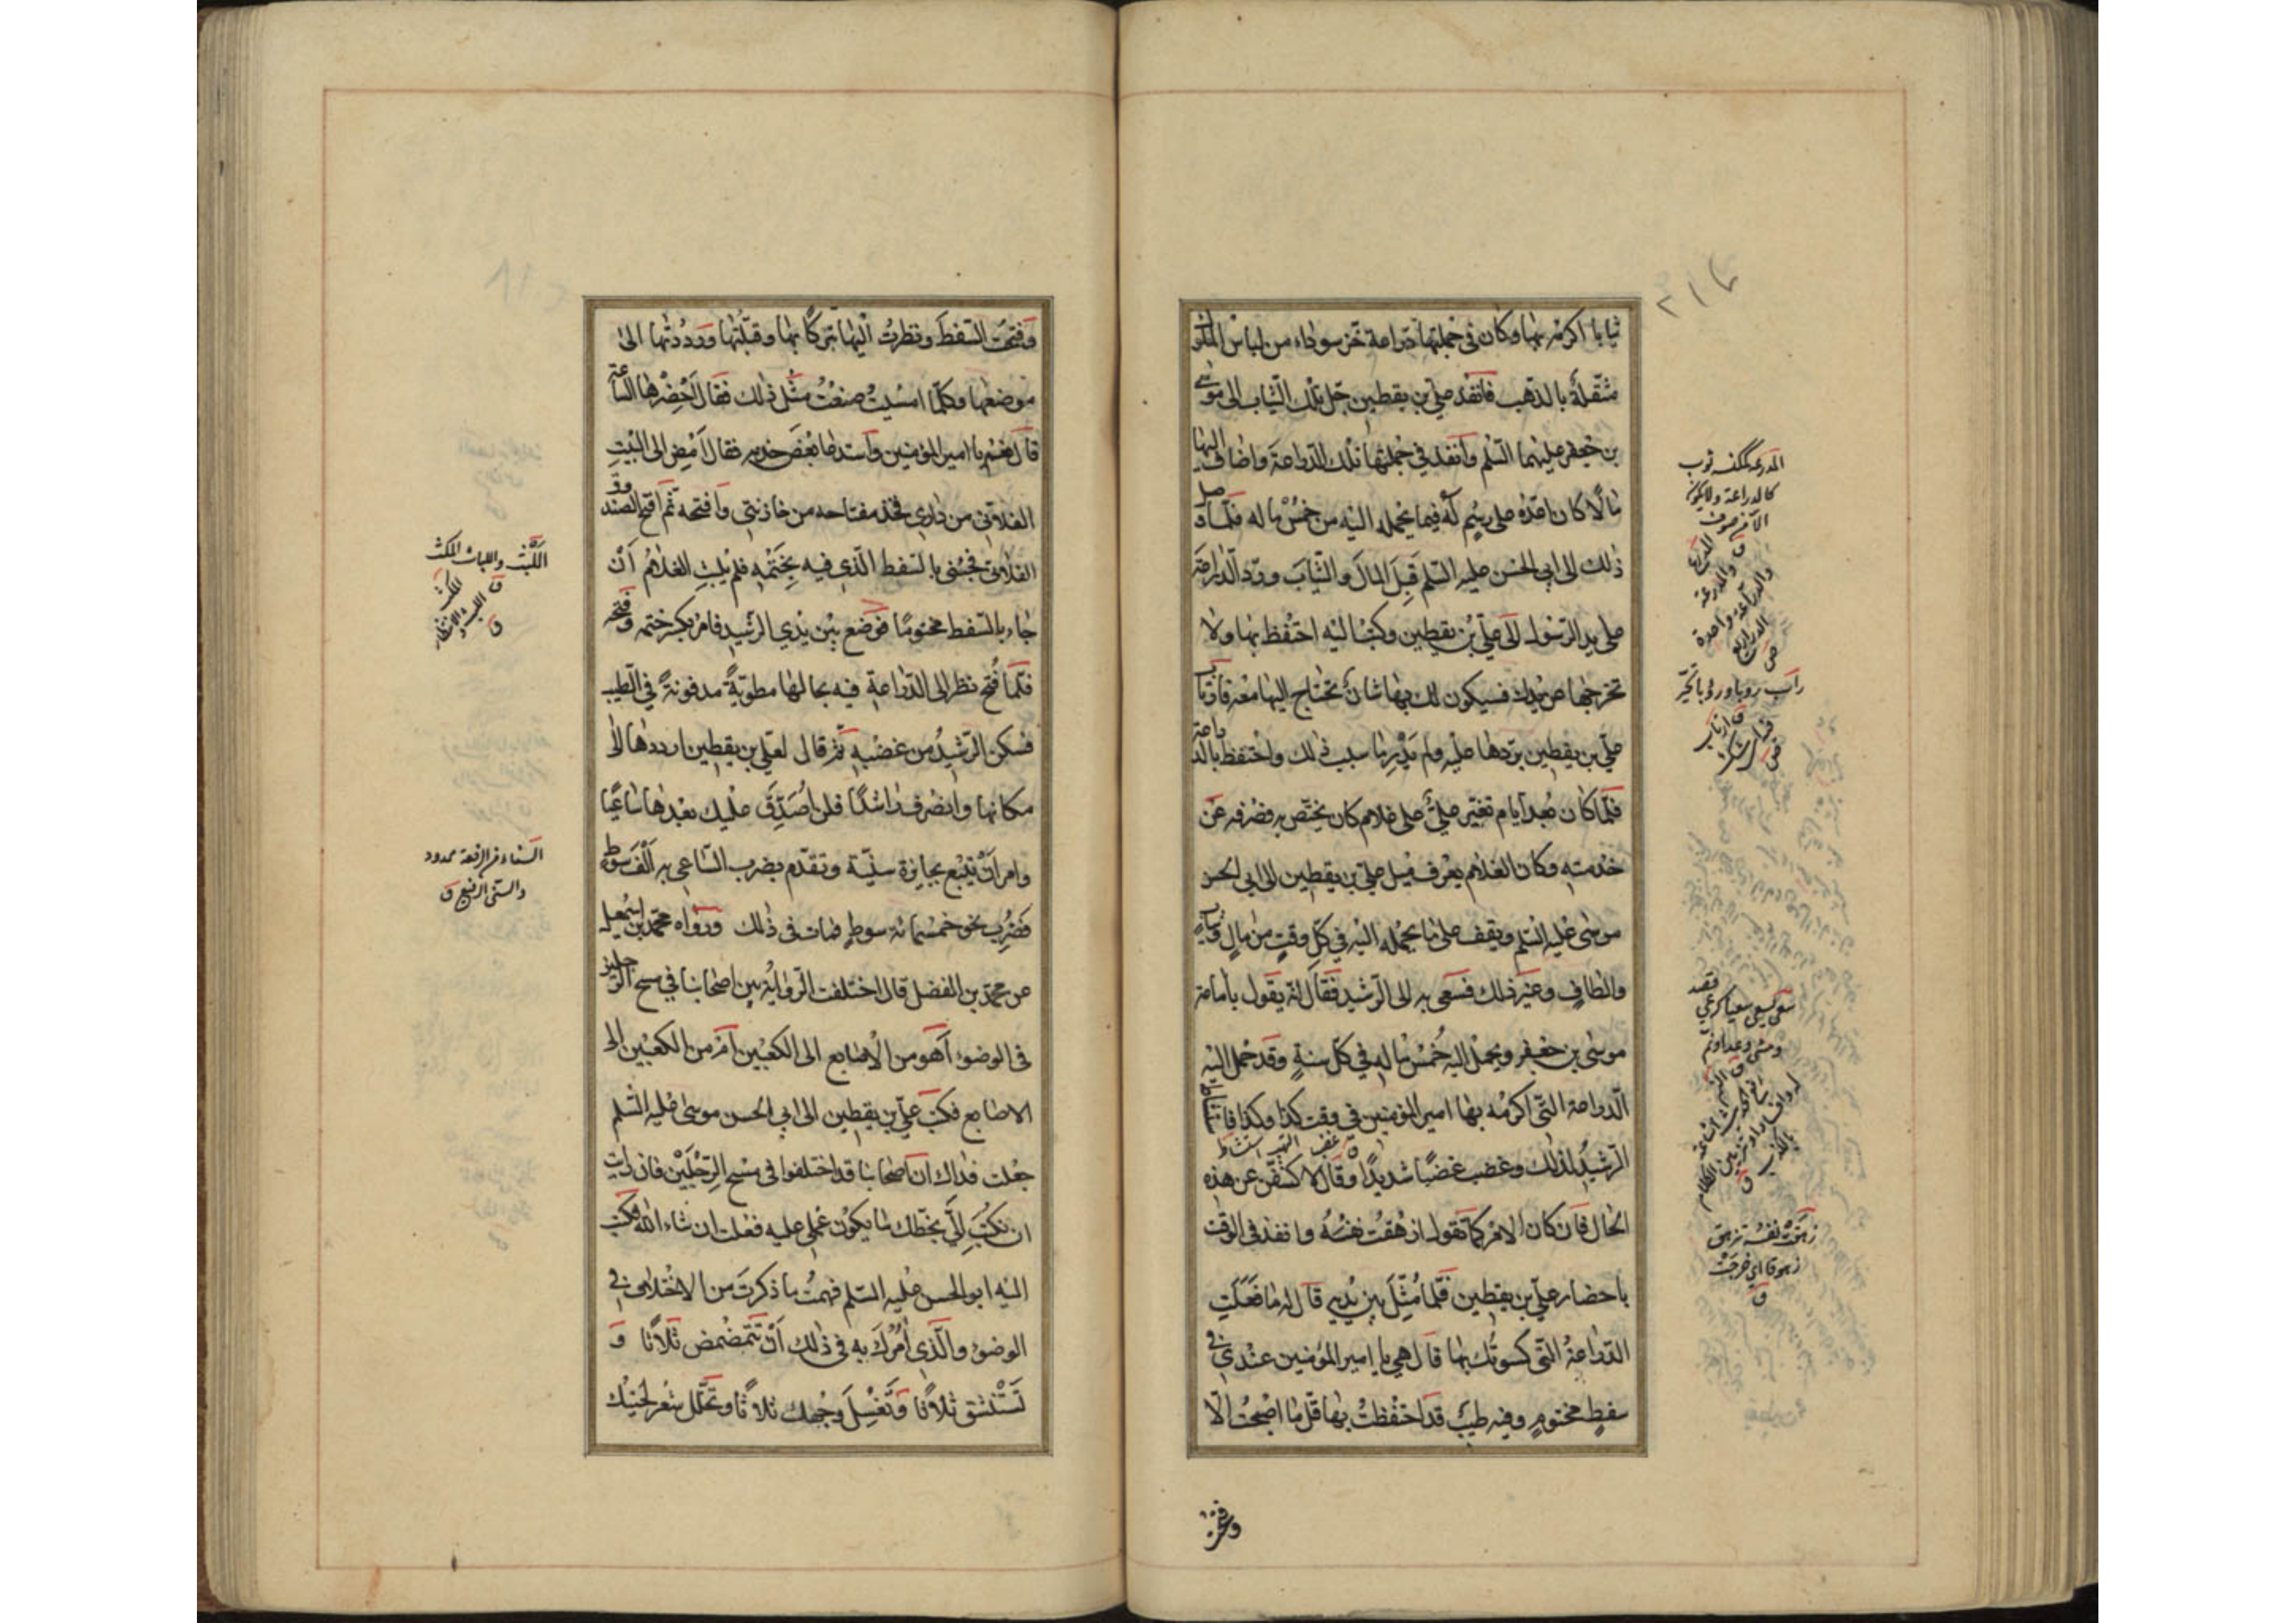 ثيابا اكرمه بها وكان في جملتها درّاعة خزّ سوداء من لباس الملوك
مثقلة بالذهب فانفذ علي بن يقطين جلّ تلك الثياب الى موسى
بن جعفر عليهما السّلم وانفذ في جملتها تلك الدّراعة واضاف اليها
مالا كان اعدّه على رسم له فيما يحمله اليه من خمس ماله فلمّا وصل
ذلك الى ابي الحسن عليه السّلم قبل المال والثياب وردّ الدّراعة
على يد الرّسول الى عليّ بن يقطين وكتب اليه احتفظ بها ولا
تخرجها عن يدك فسيكون لك بها شأن تحتاج اليها معه فارتاب
عليّ بن يقطين بردّها عليه ولم يدر ما سبب ذلك واحتفظ بالدراعة
فلمّا كان بعد ايام تغيّر عليّ على غلام كان يختصّ به فصرفه عن
خدمته وكان الغلام يعرف ميل عليّ بن يقطين الى ابي الحسن
موسى عليه السّلم ويقف على ما يحمله اليه في كلّ وقت من مال وثياب
والطاف وغير ذلك فسعى به الى الرّشيد فقال انّه يقول بامامة
موسى بن جعفر ويحمل اليه خمس ماله في كلّ سنة وقد حمل اليه
الدّراعة التّي اكرمه بها امير المؤمنين في وقت كذا وكذا فاستشاط
الرّشيد لذلك وغضب غضبا شديدا وقال لاكشفنّ عن هذه
الحال فان كان الامر كما تقول ازهقت نفسه وانفذ في الوقت
باحضار عليّ بن يقطين فلمّا مثّل بين يديه قال له ما فعلت
الدّراعة التّي كسوتك بها قال هي يا امير المؤمنين عندي في
سفط مختوم وفيه طيب قد احتفظت بها قلّ ما اصبحت الّا
وفتحت
المدرعة كمكنسة ثوب
كالدراعة ولا يكون
الّا من صوف
ق
سعى يسعى سعيا كرعي قصد
زهقت نفسه تزهق
زهوقا اي خرجت
ق
وفتحت السّفط ونظرت اليها تبرّكا بها وقبّلتها ورددتها الى
موضعها وكلّما امسيت صنعت مثل ذلك فقال احضرها السّاعة
قال نعم يا امير المؤمنين واستدعا بعض خدمه فقال امض الى البيت
الفلاني من داري فخذ مفتاحه من خازنتي وافتحه ثم افتح الصندوق
الفلاني فجئني بالسّفط الّذي فيه بختمه فلم يلبث الغلام أن
جاء بالسّفط مختوما فوضع بين يدي الرّشيد فامر بكسر ختمه وفتحه
فلمّا فتح نظر الى الدّراعة فيه بحالها مطويّة مدفونة في الطّيب
فسكن الرّشيد من غضبه ثمّ قال لعليّ بن يقطين ارددها الى
مكانها وانصرف راشدا فلن اصدّق عليك بعدها ساعيا
وامر أن يتبع بجايزة سنيّة وتقدّم بضرب السّاعي به الف سوط
فضرب نحو خمسمائة سوط فمات في ذلك ورواه محمّد بن اسمعيل
عن محمّد بن الفضل قال اختلفت الرّواية بين اصحابنا في مسح الرّجلين
في الوضوء أهو من الاصابع الى الكعبين أم من الكعبين الى
الاصابع فكتب عليّ بن يقطين الى ابي الحسن موسى عليه السّلم
جعلت فداك انّ اصحابنا قد اختلفوا في مسح الرّجلين فان رايت
ان تكتب اليّ بخطّك ما يكون عملي عليه فعلت ان شاء الله فكتب
اليه ابو الحسن عليه السّلم فهمت ما ذكرت من الاختلاف في
الوضوء والّذي آمرك به في ذلك أن تتمضمض ثلاثا و
تستنشق ثلاثا وتغسل وجهك ثلاثا وتخلّل شعر لحيتك
اللّبث واللباث المكث
ق
السّناء من الرفعة ممدود
والسّنى الرفيع ق